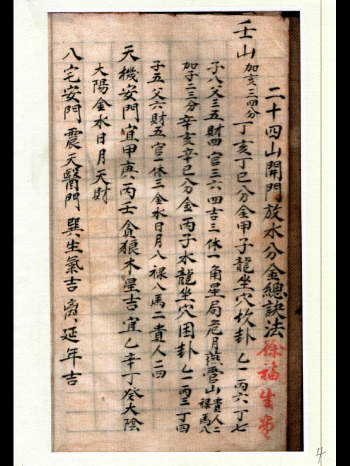 二十四山開門放水分金總訣法
徐福生
壬山 加亥三四分 丁亥丁巳分金甲子龍坐穴坎卦 乙一丙六丁七
子八父三五財四官三六四吉三休一角星局危月燕管山 貴人二 祿馬八
加子二三分 辛亥辛巳分金丙子水龍坐穴困卦 乙二丙三丁四
子五父六財五官一休三金水日月八祿八馬二貴人二四
天機安門宜甲庚丙壬貪狼木星吉宜乙辛丁癸太陰
太陽金水日月天財
八宅安門震天醫門巽生氣吉离延年吉
4